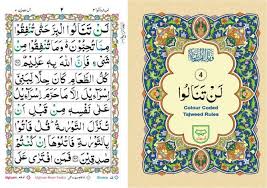 4
لَنْ تَنَالُوا
Colour Coded
Tajweed Rules
لَنْ تَنَالُوا الْبِرَّ حَتّٰى تُنْفِقُوْا
مِمَّا تُحِبُّوْنَ ؕ وَمَا تُنْفِقُوْا مِنْ
شَىْءٍ فَاِنَّ اللّٰهَ بِهٖ عَلِيْمٌ
كُلُّ الطَّعَامِ كَانَ حِلًّا لِّبَنِىْۤ
اِسْرَآءِيْلَ اِلَّا مَا حَرَّمَ اِسْرَآءِيْلُ
عَلٰى نَفْسِهٖ مِنْ قَبْلِ اَنْ تُنَزَّلَ
التَّوْرٰىةُ ؕ قُلْ فَاْتُوْا بِالتَّوْرٰىةِ
فَاتْلُوْهَاۤ اِنْ كُنْتُمْ
صٰدِقِيْنَ فَمَنِ افْتَرٰى عَلَى